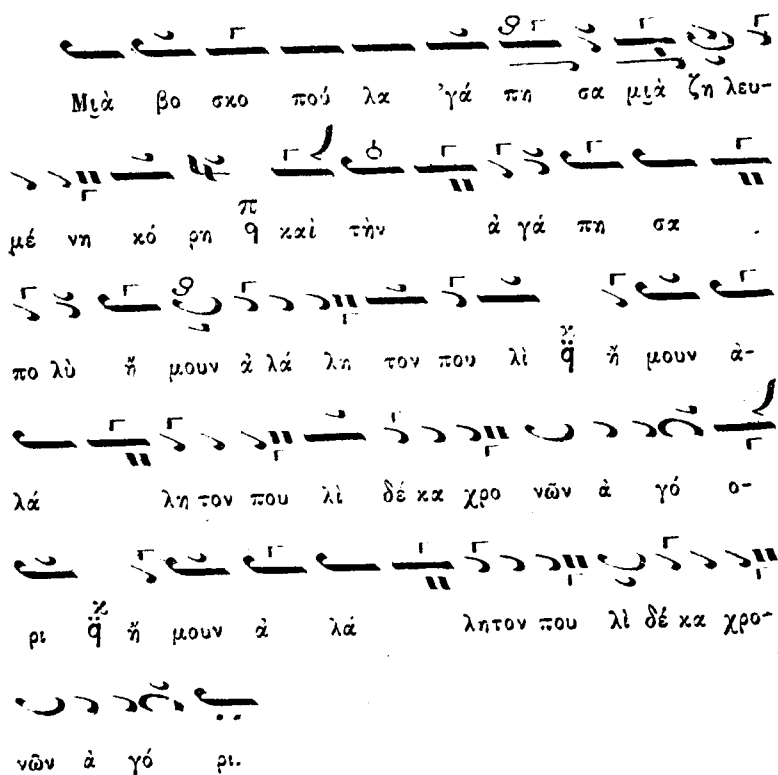 Μιὰ βο σκο πού λα 'γά πη σα μιὰ ζη λευ-
μέ νη κό ρη π q καὶ τὴν ἀ γά πη σα .
πο λὺ ἤ μουν ἀ λά λη τον που λὶ ϰ q̈ ἤ μουν ἀ-
λά λη τον που λὶ δέ κα χρο νῶν ἀ γό ο-
ρι ϰ q̈ ἤ μουν ἀ λά λητον που λὶ δέ κα χρο-
νῶν ἀ γό ρι.